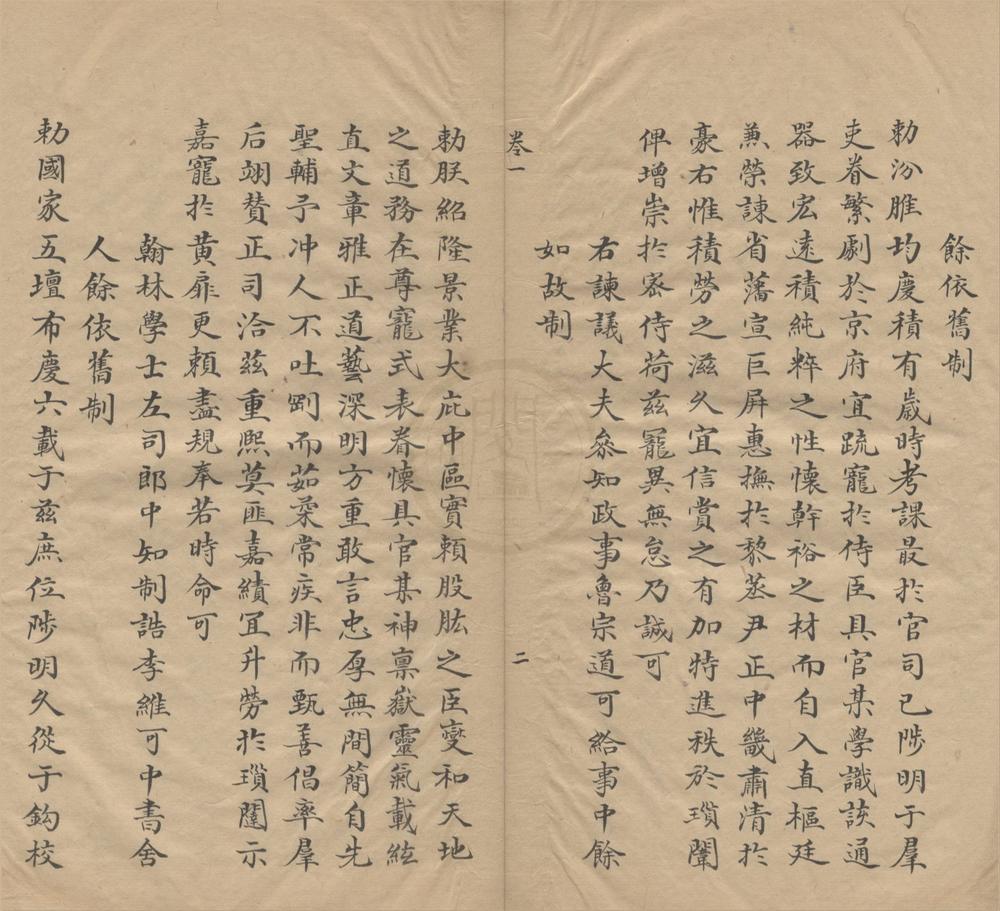 餘依舊制
勅汾脽均慶積有歲時考課最於官司已陟明于羣
吏眷繁劇於京府宜䟽寵於侍臣具官某學識該通
器致宏遠積純粹之性懷幹裕之材而自入直樞廷
兼榮諫省藩宣巨屏惠撫於黎蒸尹正中畿肅清於
豪右惟積勞之滋久宜信賞之有加特進秩於瑣闈
俾增崇於宻侍荷兹寵異無怠乃誠可
右諫議大夫叅知政事魯宗道可給事中餘
如故制
卷一
二
勅朕紹隆景業大庇中區實賴股肱之臣變和天地
之道務在尊寵式表眷懷具官某神禀嶽靈氣載絃
直文章雅正道藝深明方重敢言忠厚無間簡自先
聖輔予冲人不吐剛而茹柔常疾非而甄善倡率羣
后翊賛正司洽兹重熙莫匪嘉績冝升勞於瑣闥示
嘉寵於黃扉更賴盡規奉若時命可
翰林學士左司郎中知制誥李維可中書舍
人餘依舊制
勅國家五壇布慶六載于兹庶位陟明久從于鈎校